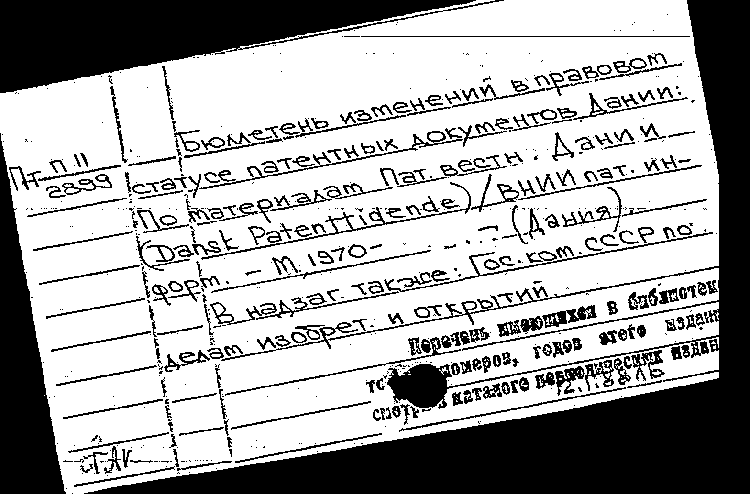 Бюллетень изменений в правовом
Пт-п II
2899
статусе патентных документов Дании:
По материалам Пат. вестн. Дании
(Dansk Patenttidende) / ВНИИ пат. ин-
форм. - М., 1970- . . . - . . - (Дания).
В надзаг. также: Гос. ком. СССР по
делам изобрет. и открытий.
Перечень имеющихся в библиотеке
номеров, годов этого издания
смотри в каталоге периодических издан
12.1.88